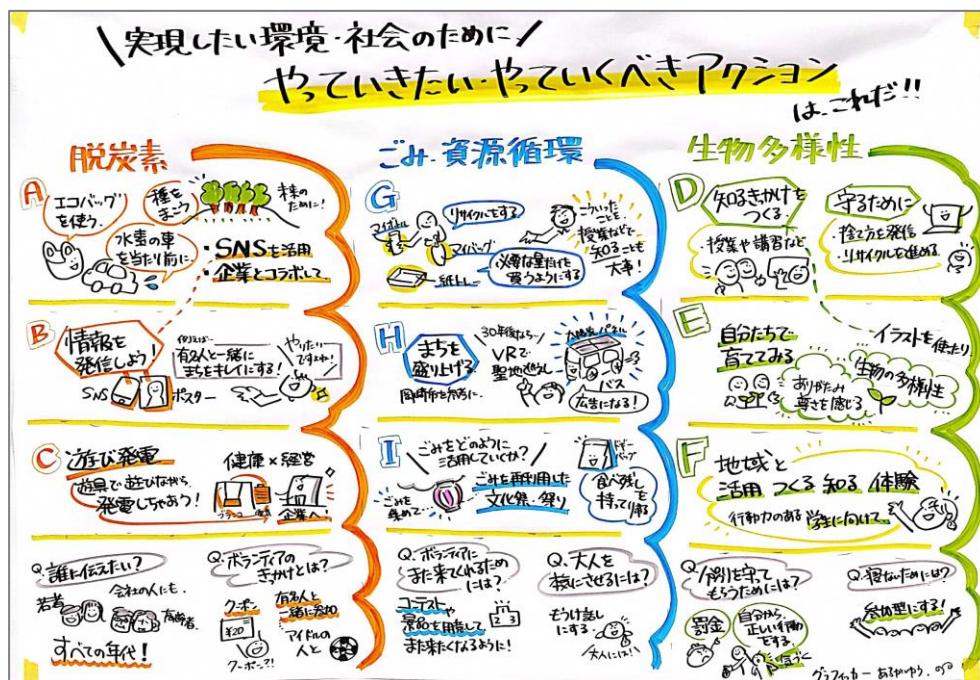 実現したい環境・社会のために
やっていきたい・やっていくべきアクション
は、これだ!!
脱炭素
A
エコバッグ
を使う。
種を
まこう
未来の
ために!
水素の車
を当たり前に
・SNSを活用
企業とコラボして
B
情報を
発信しよう!
SNS
ポスター
例えば…
有名人と一緒に
まちをキレイにする!
やりたい
ですよね!
C
遊び発電
遊具で遊びながら
発電しちゃおう!
健康×経営
ブランコ
企業へ!
Q.誰に伝えたい?
若者
会社の人にも
高齢者
すべての年代!
Q.ボランティアの
きっかけとは?
クーポン
¥20
クーポン?!
有名人と
一緒に参加
アイドルの
人と
ごみ・資源循環
G
マイボトル
リサイクルをする
マイバッグ
紙トレー
必要な量だけを
買うようにする
こういった
ことを、
授業などで
知ることも
大事!
H
まちを
盛り上げる
岡崎市を参考に
30年後なら…
VRで
聖地巡り
太陽光パネル
バス
広告になる!
I
ごみをどのように
活用していくか?
ごみを
集めて…
ごみを再利用した
文化祭・祭り
ドギー
バッグ
食べ残し
を
持って帰る
Q.ボランティアに
また来てくれるため
には?
コンテストや
景品を用意して
また来たくなるように!
1
2 3
Q.大人を
参加させるには?
もうけ話し
にする。
大人には!!
生物多様性
D
知るきっかけを
つくる。
授業や講習など
守るために
・捨て方を発信
・リサイクルを進める
E
自分たちで
育ててみる
イラストを使ったり
ありがたみ
尊さを感じる
生物の多様性
F
地域と
活用 つくる 知る 体験
行動力のある学生に向けて
Q.分別を守って
もらうためには?
罰金
自分から
正しい行動
をする
気づく
Q.寝ないためには?
参加型にする!
グラフィッカー あるがゆう。